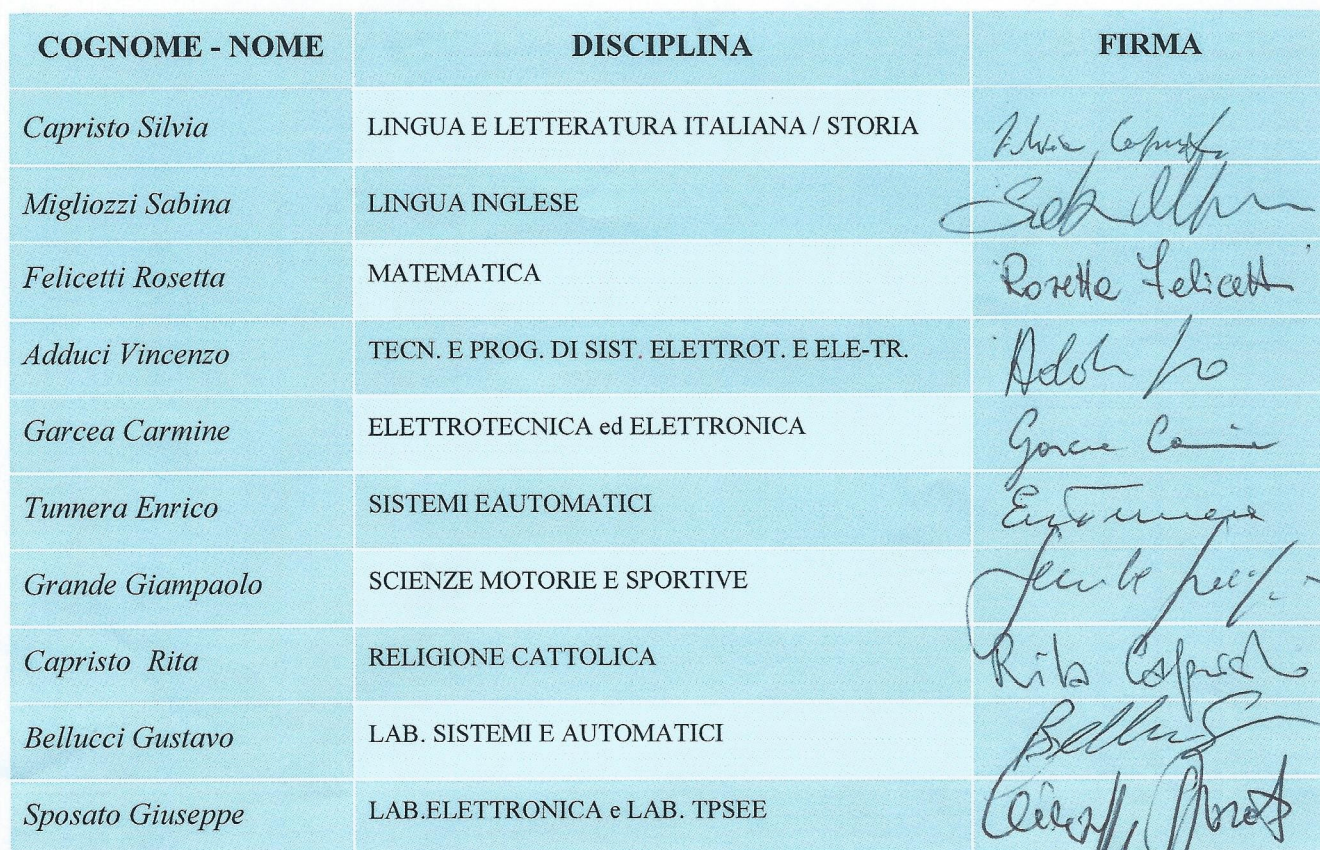 COGNOME - NOME DISCIPLINA FIRMA
Capristo Silvia LINGUA E LETTERATURA ITALIANA / STORIA
Migliozzi Sabina LINGUA INGLESE
Felicetti Rosetta MATEMATICA Rosetta Felicetti
Adduci Vincenzo TECN. E PROG. DI SIST. ELETTROT. E ELE-TR.
Garcea Carmine ELETTROTECNICA ed ELETTRONICA
Tunnera Enrico SISTEMI EAUTOMATICI
Grande Giampaolo SCIENZE MOTORIE E SPORTIVE
Capristo Rita RELIGIONE CATTOLICA Rita Capristo
Bellucci Gustavo LAB. SISTEMI E AUTOMATICI
Sposato Giuseppe LAB.ELETTRONICA e LAB. TPSEE